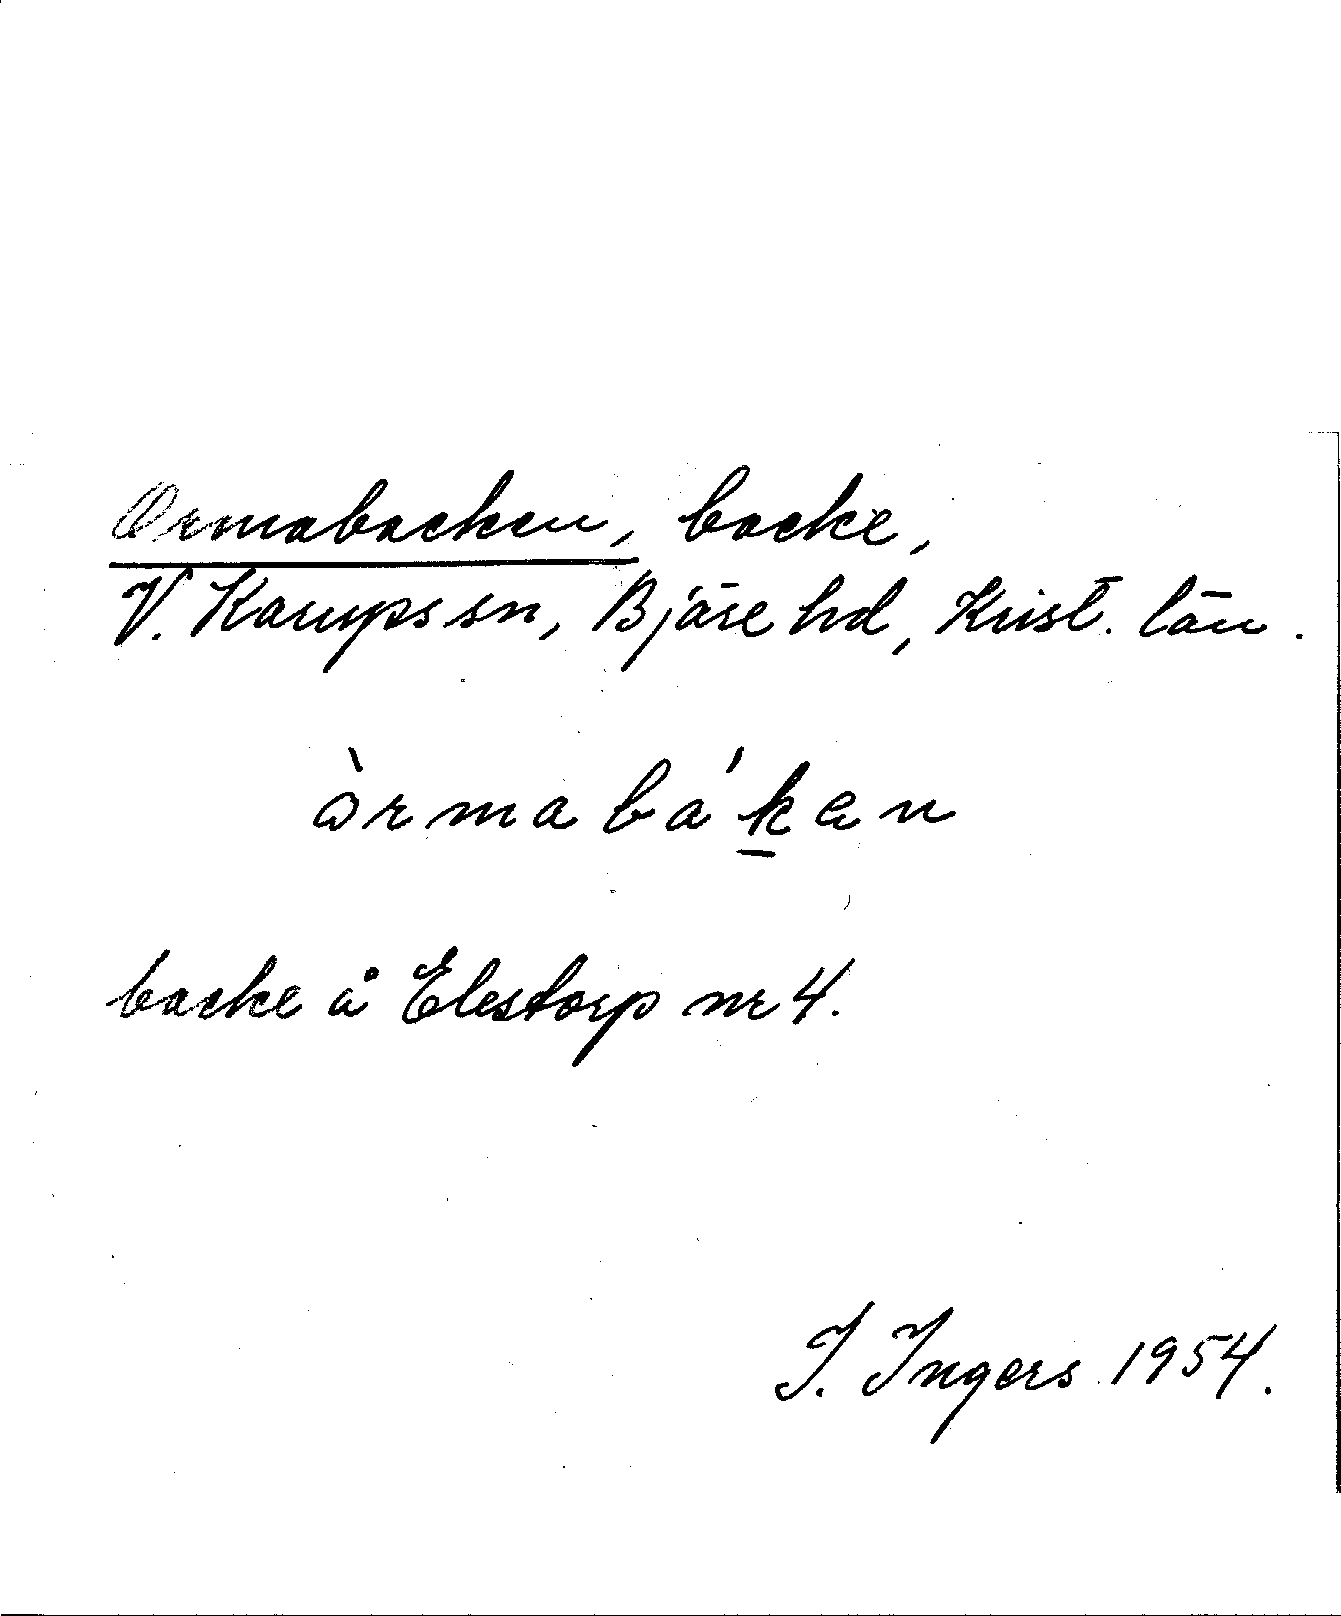 Ormabacken, backe,
V. Karups sn, Bjäre hd, Krist. län.
òrmabák̠en
backe å Elestorp nr 4.
I. Ingers 1954.